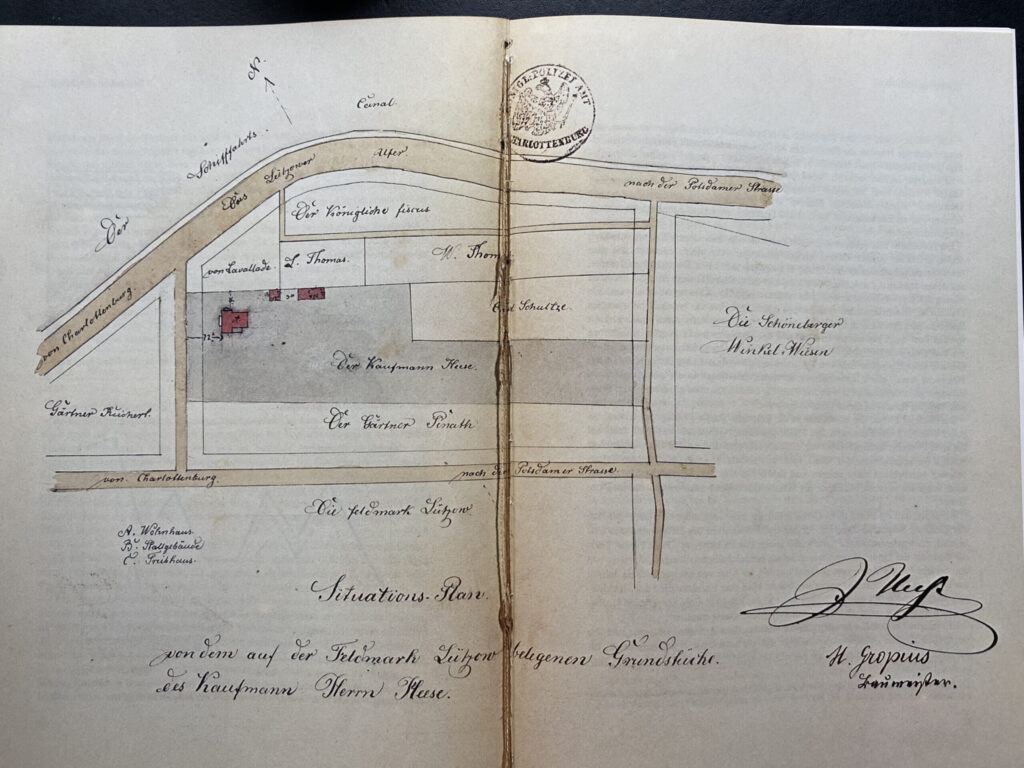 N.
Canal.
Schifffahrts.
Der
Das Lützower Ufer.
POLIZEI AMT
CHARLOTTENBURG
nach der Potsdamer Strasse
Der Königliche fiscus
von Lavallade.
L. Thomas.
W. Thom
von Charlottenburg.
Schultze.
Die Schöneberger
Winkel-Wiesen
72
Der Kaufmann Heese.
Gärtner
Der Gärtner Pinath
von Charlottenburg.
nach der Potsdamer Strasse.
Die feldmark Lützow.
A. Wohnhaus
B. Stallgebäude
C. Treibhaus.
Situations-Plan.
von dem auf der Feldmark Lützow belegenen Grundstücke.
des Kaufmann Herrn Heese.
M. Gropius
Baumeister.